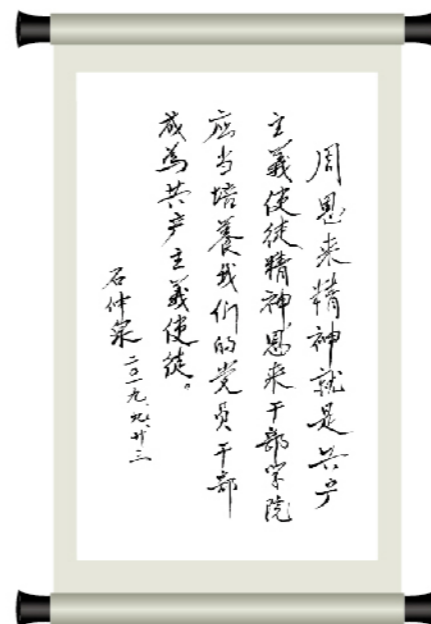 周恩来精神就是共产
主義使徒精神，恩来干部学院
应当培養我们的党员干部
成為共产主義使徒。
石仲泉 二〇一九、九、廿三